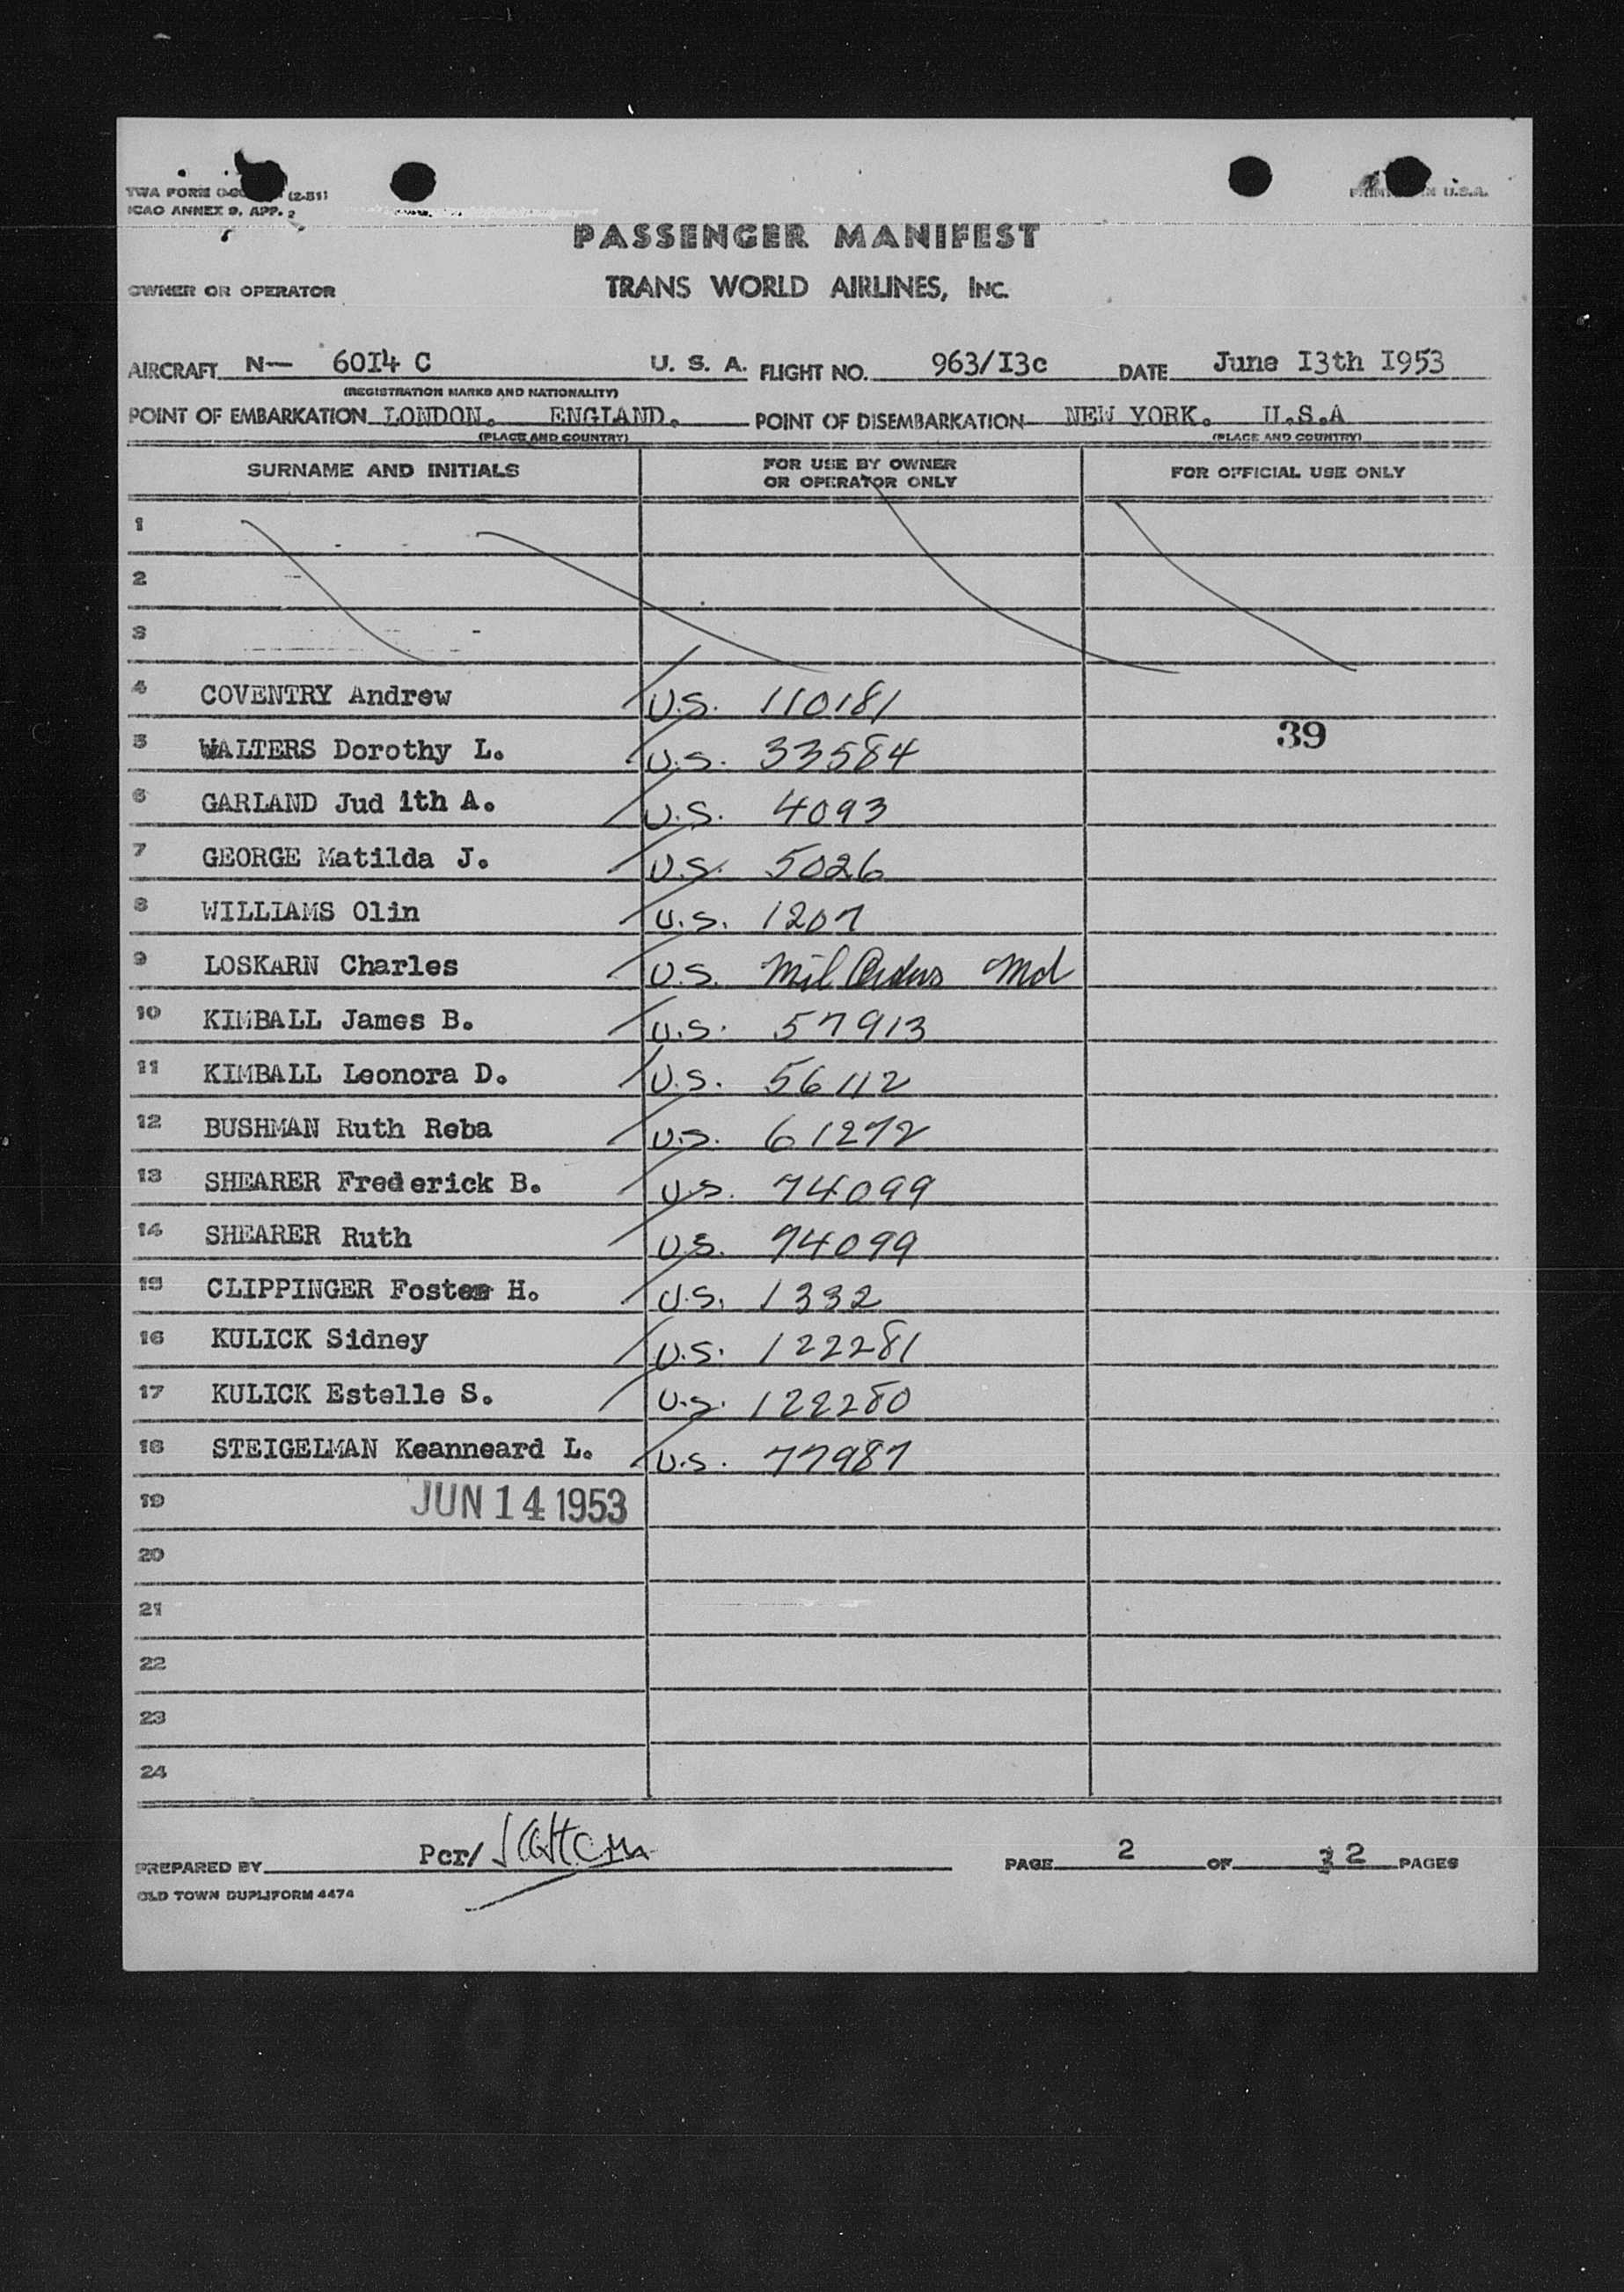 TWA FORM (2-51)
ICAO ANNEX 9, APP. 2
PRINTED IN U.S.A.
PASSENGER MANIFEST
OWNER OR OPERATOR TRANS WORLD AIRLINES, INC.
AIRCRAFT N— 6OI4 C U. S. A. FLIGHT NO. 963/I3c DATE June I3th I953
(REGISTRATION MARKS AND NATIONALITY)
POINT OF EMBARKATION LONDON. ENGLAND. POINT OF DISEMBARKATION NEW YORK. U.S.A
(PLACE AND COUNTRY) (PLACE AND COUNTRY)
SURNAME AND INITIALS FOR USE BY OWNER OR OPERATOR ONLY FOR OFFICIAL USE ONLY
1
2
3
4 COVENTRY Andrew U.S. 110181
39
5 WALTERS Dorothy L. U.S. 33584
6 GARLAND Jud ith A. U.S. 4093
7 GEORGE Matilda J. U.S. 5026
8 WILLIAMS Olin U.S. 1207
9 LOSKARN Charles U.S. Mil Orders Md
10 KIMBALL James B. U.S. 57913
11 KIMBALL Leonora D. U.S. 56112
12 BUSHMAN Ruth Reba U.S. 61272
13 SHEARER Frederick B. U.S. 74099
14 SHEARER Ruth U.S. 74099
15 CLIPPINGER Foster H. U.S. 1332
16 KULICK Sidney U.S. 122281
17 KULICK Estelle S. U.S. 122280
18 STEIGELMAN Keanneard L. U.S. 77987
19 JUN 14 1953
20
21
22
23
24
PREPARED BY Per/ PAGE 2 OF 2 PAGES
OLD TOWN DUPLIFORM 4474